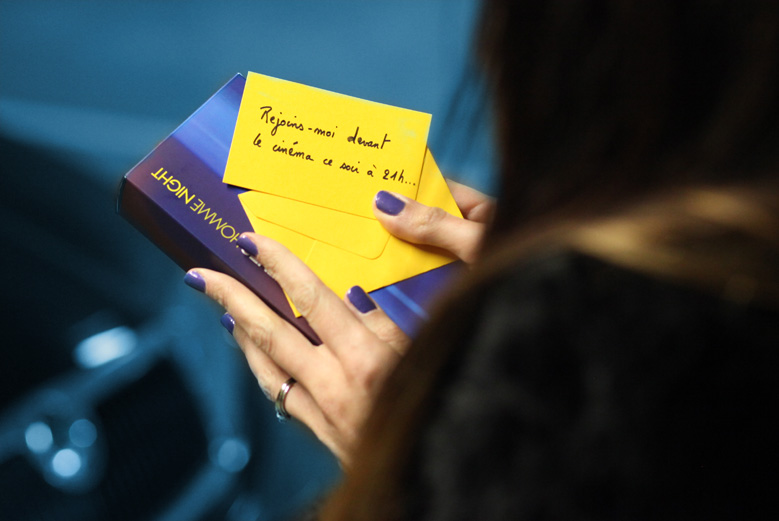 Rejoins-moi devant
le cinéma ce soir à 21h...
HOMME NIGHT